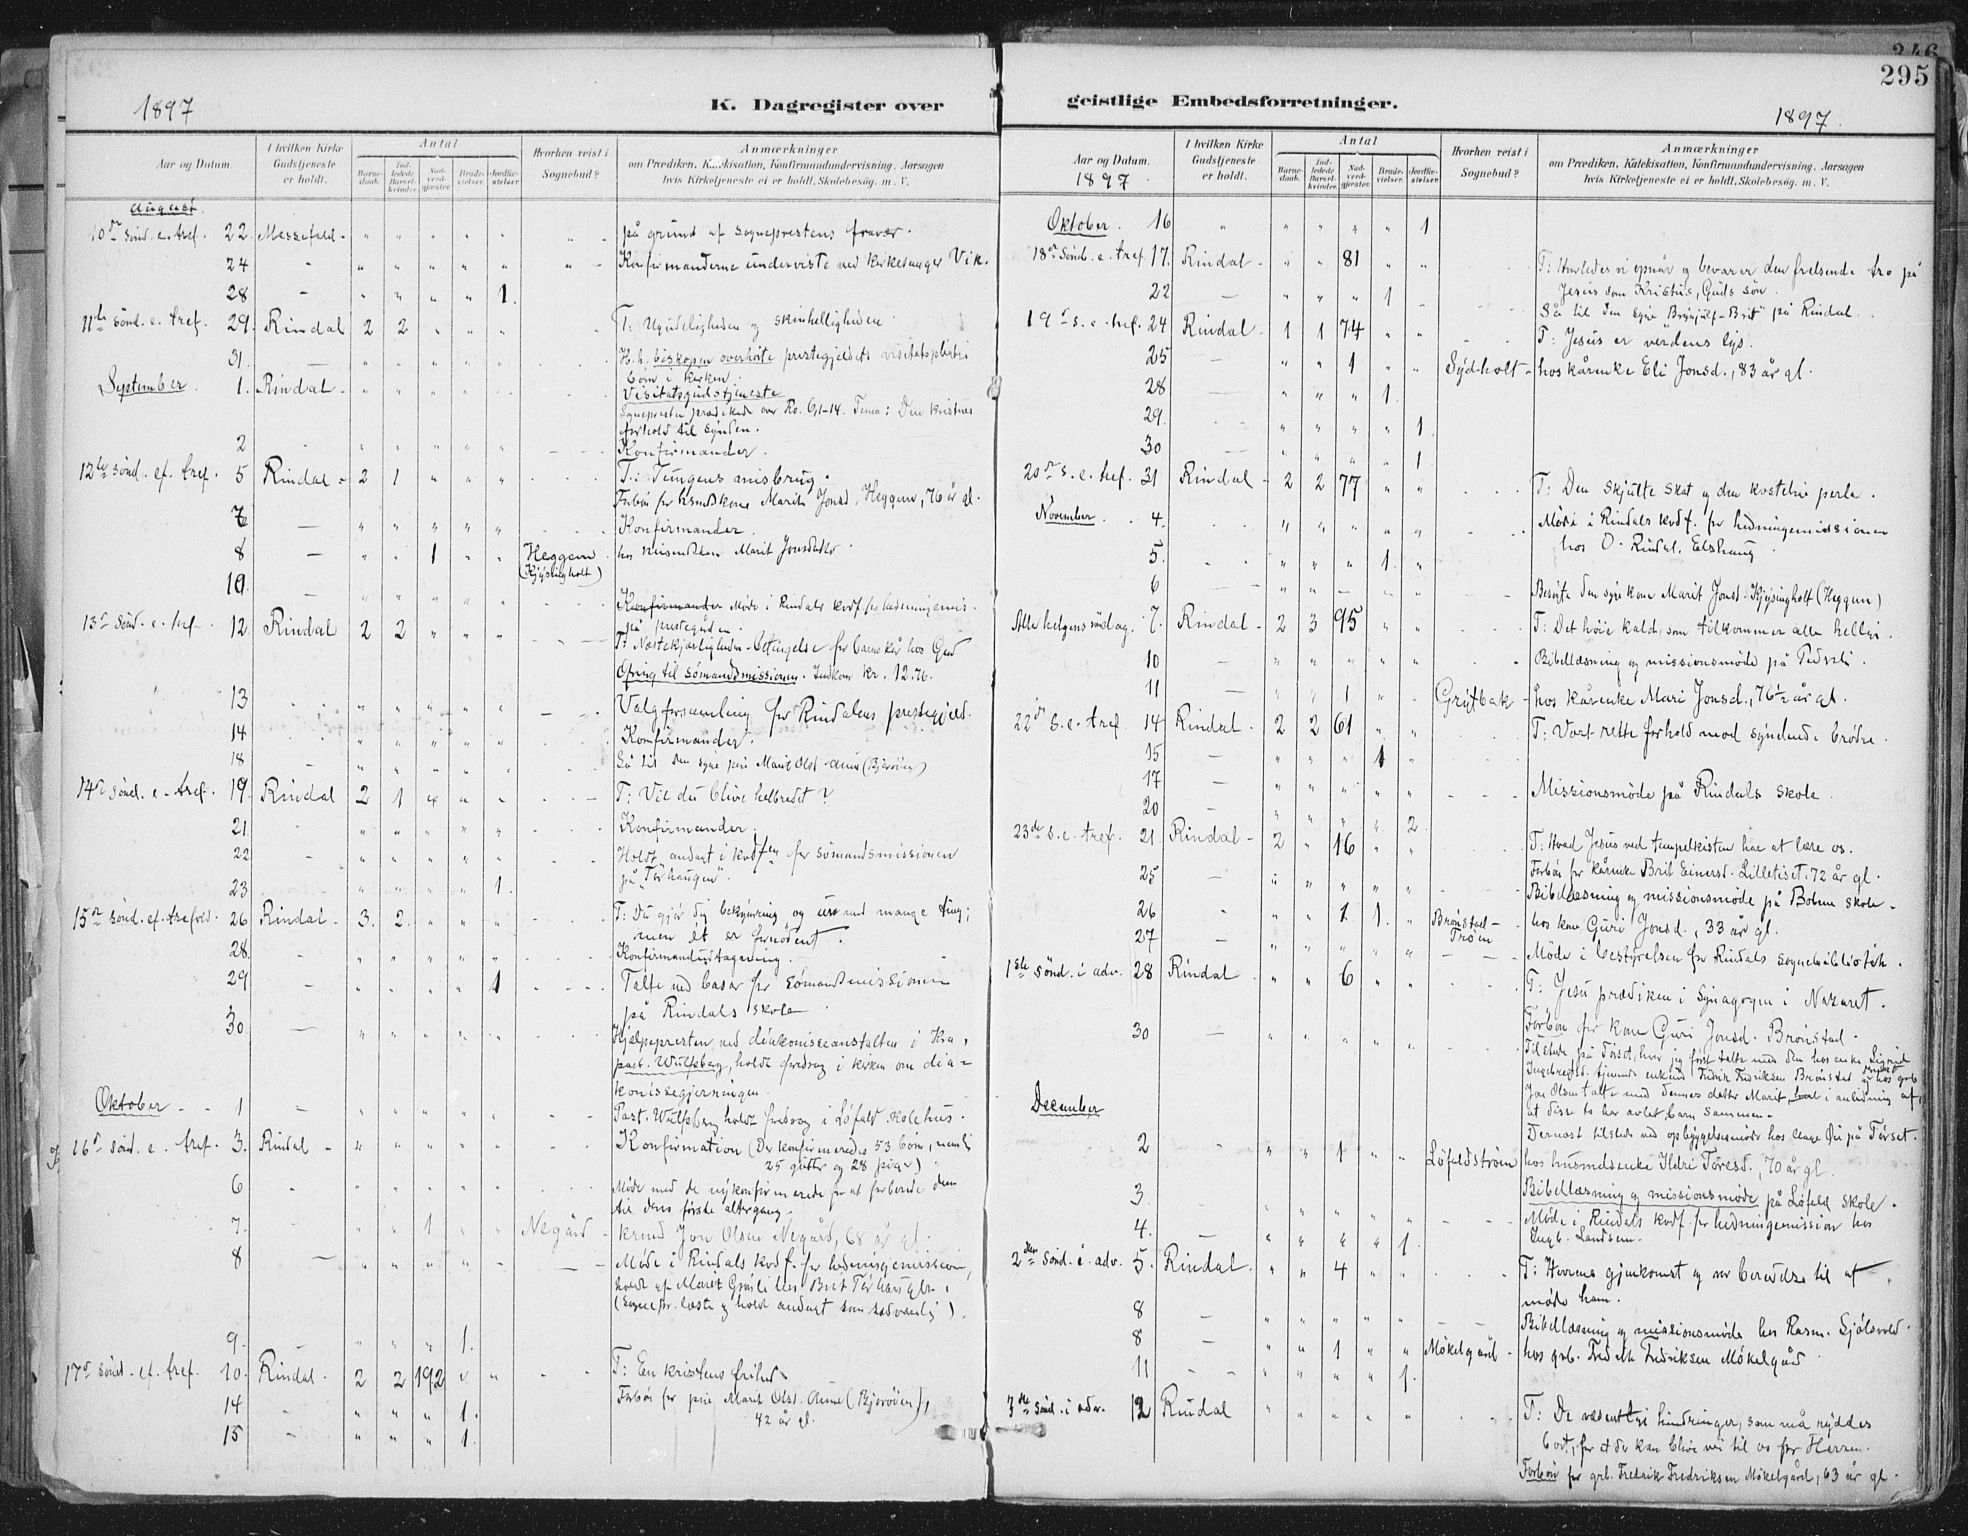 346
295
1897
K. Dagregister over
Aar og Datum
I hvilken Kirke Gudstjeneste er holdt.
Antal
Barne-daab.
Ind-ledede Barsel-kvinder.
Nad-verd-gjester.
Brude-vielser.
Jordfæ-stelser.
Hvorhen reist i Sognebud?
Anmærkninger
om Prædiken, Katekisation, Konfirmandundervisning. Aarsagen
hvis Kirketjeneste ei er holdt. Skolebesøg. m. V.
August.
10de Sønd. e. tref. 22. Messefald - " " " " " " på grund af sogneprestens fravær.
24 - " " " " " " Konfirmanderne underviste ved kirkesanger Vik.
28 - " " " " 1.
11te Sønd. e. tref. 29. Rindal 2 2 " " " T: Ugudeligheden og skinhelligheden
31. — " " " " " H.h. biskopen overhørte prestegjeldets visitatspligtige
børn i kirken.
September. 1. Rindal - " " " " " Visitatsgudstjeneste
Sognepresten prædikede over Ro. 6,1-14. Tema: Den kristnes
forhold til synden.
2 - " " " " " Konfirmander.
12te Sønd. ef. tref. 5 Rindal - 2 1 " " " T.: Tungens misbrug.
Forbøn for Marit Jonsd. Heggem, 76 år gl.
7 — " " " " " Konfirmander.
8 — " " 1 " " Heggem hos Marit Jonsdatter.
(Kjysingholt)
10. — " " " " " Konfirmander Møde i Rindals kvdf. for hedningemis.
på prestegården.
13de Sønd. e. tref. 12. Rindal 2 2 " " " T: Næstekjærligheden - betingelse for barnekår hos Gud
Ofring til sømandsmissionen. Indkom kr. 12.76.
13 " " " " " Valgforsamling for Rindalens prestegjeld.
14 " " " " " Konfirmander.
18 - " " " " " Så til den syge pige Marit Olsd. Aune (Bjørøien)
14de Sønd. e. tref. 19. Rindal 2 1 " " " T: Vil du blive helbredet?
21. " " " " " Konfirmander.
22 - " " " " " Holdt andagt i kvdf.en for sømandsmissionen
på "Tørhaugen".
23 - " " " " 1.
15de Sønd. ef. trefold. 26 Rindal - 3. 2. " " " T: Du gjør dig bekymring og uro med mange ting;
men ét er fornødent.
28. - " " " " " Konfirmandudtagning.
29 - " " " " 1 Talte ved basar for Sømandsmissionen
på Rindals skole.
30 — " " " " " Hjælpepresten ved diakonisseanstalten i Kra,
past. Wulfsberg, holdt foredrag i kirken om dia-
konissegjerningen.
Oktober - - 1 - " " " " " Past. Wulfsberg holdt foredrag i Løfald skolehus.
16de Sønd. e. tref. 3. Rindal - " " " " " Konfirmation (Der konfirmeredes 53 børn, nemlig
25 gutter og 28 piger)
6 - " " " " " Møde med de nykonfirmerede for at forberede dem
til deres første altergang.
7. - " " 1 " " Negård - Jon Olsen Negård, 68 år gl.
8 — " " " " " Møde i Rindals kvdf. for hedningemission,
holdt af Marit hos Brit Tørhaug
(Sognepr. læste og holdt andagt som sædvanlig).
9. - " " " 1.
17de Sønd. ef. tref. 10. Rindal. 2 2 192 " " T: En kristens frihed.
Forbøn for pige Marit Olsd. Aune (Bjørøien),
42 år gl.
14 - " " " 1.
15 - " " " 1.
geistlige Embedsforretninger.
1897.
Aar og Datum.
1897.
I hvilken Kirke Gudstjeneste er holdt.
Antal
Barne-daab.
Ind-ledede Barsel-kvinder.
Nad-verd-gjester.
Brude-vielser.
Jordfæ-stelser.
Hvorhen reist i Sognebud?
Anmærkninger
om Prædiken, Katekisation, Konfirmandundervisning. Aarsagen
hvis Kirketjeneste ei er holdt. Skolebesøg. m. V.
Oktober. 16 " " " " " 1
18de Sønd. e. tref. 17. Rindal - " " 81 " " T: Hvorledes vi opnår og bevarer den frelsende tro på
Jesus som Kristus, Guds søn.
22 — " " " 1 " Så til den syge Brit på Rindal.
19de s. e. tref. 24 Rindal - 1 1 74 " " T: Jesus er verdens lys.
25 — " " 1 " " Sydholt - hos kårenke Eli Jonsd., 83 år gl.
28 — " " " 1.
29. " " " " 1.
30 " " " " 1
20de S. e. tref. 31 Rindal - 2 2 77 " " T: Den skjulte skat og den kostelige perle.
November. 4. " " " " " Møde i Rindals kvdf. for hedningemissionen
hos O. Rindal, Elshaug
5. " " " 1. "
6 " " - - - Besøgte den syge kone Marit Jonsd. Kjysingholt (Heggem)
Allehelgensmødag. 7. Rindal - 2 3 95 " " T: Det høie kald, som tilkommer alle hellige.
10 — " " " " " Bibellæsning og missionsmøde på
11 — " " 1 " " Grytbak - hos kårenke Mari Jonsd., 76½ år gl.
22de S. e. tref. 14 Rindal. 2 2 61 " " T: Vort rette forhold mod syndende brødre.
15 — " " " 1 "
17 — " " " " " Missionsmøde på Rindals skole.
20 — " " " " 2.
23de s. e. tref. 21. Rindal - 2 " 16 " " T: Hvad Jesus ved tempelkisten har at lære os.
Forbøn for kårenke Brit Einersd. Lilletiset. 72 år gl.
25 - " " " " " Bibellæsning og missionsmøde på Bolme skole -
26 - " " 1 1. " Brønstad-Trøen hos kone Guri Jonsd., 33 år gl.
27 — " " " " " Møde i bestyrelsen for Rindals sognebibliothek.
1ste sønd. i adv. 28 Rindal " " 6 " " T: Jesu prædiken i Synagogen i Nazaret.
Forbøn for kone Guri Jonsd. Brønstad.
30 — " " " " " Tilstede på Tørset, hvor jeg først talte med den hos enke Sigrid
Ingebregtsd. tjenende enkemd. Fredrik Fredriksen Brønstad og hos grb.
Jon Olsen talte med dennes datter Marit, i anledning af,
at disse to har avlet barn sammen.
December Dernæst tilstede ved opbyggelsesmøde hos på Tørset.
2 - " " 1 " " Løfaldstrøen hos husmdsenke Ildri Toresd., 70 år gl.
3. - " " " " " Bibellæsning og missionsmøde på Løfald skole.
4. — " " " " 1. Møde i Rindals kvdf. for hedningemission hos
Ingb. Landsem.
2den sønd. i adv. 5. Rindal. " " 4 " " T: Herrens gjenkomst og vor beredelse til at
møde ham.
8 — " " " " " Bibellæsning og missionsmøde hos Rasm. Sjølsvold.
8 - " " 1 " " Møkelgård - hos grb. Fredrik Fredriksen Møkelgård
11 - " " " " 1.
3die sønd. i adv. 12 Rindal " " " " " T: De væsentlige hindringer, som må ryddes
bort, for at der kan blive vei til os for Herren.
Forbøn for grb. Fredrik Fredriksen Møkelgård, 63 år gl.